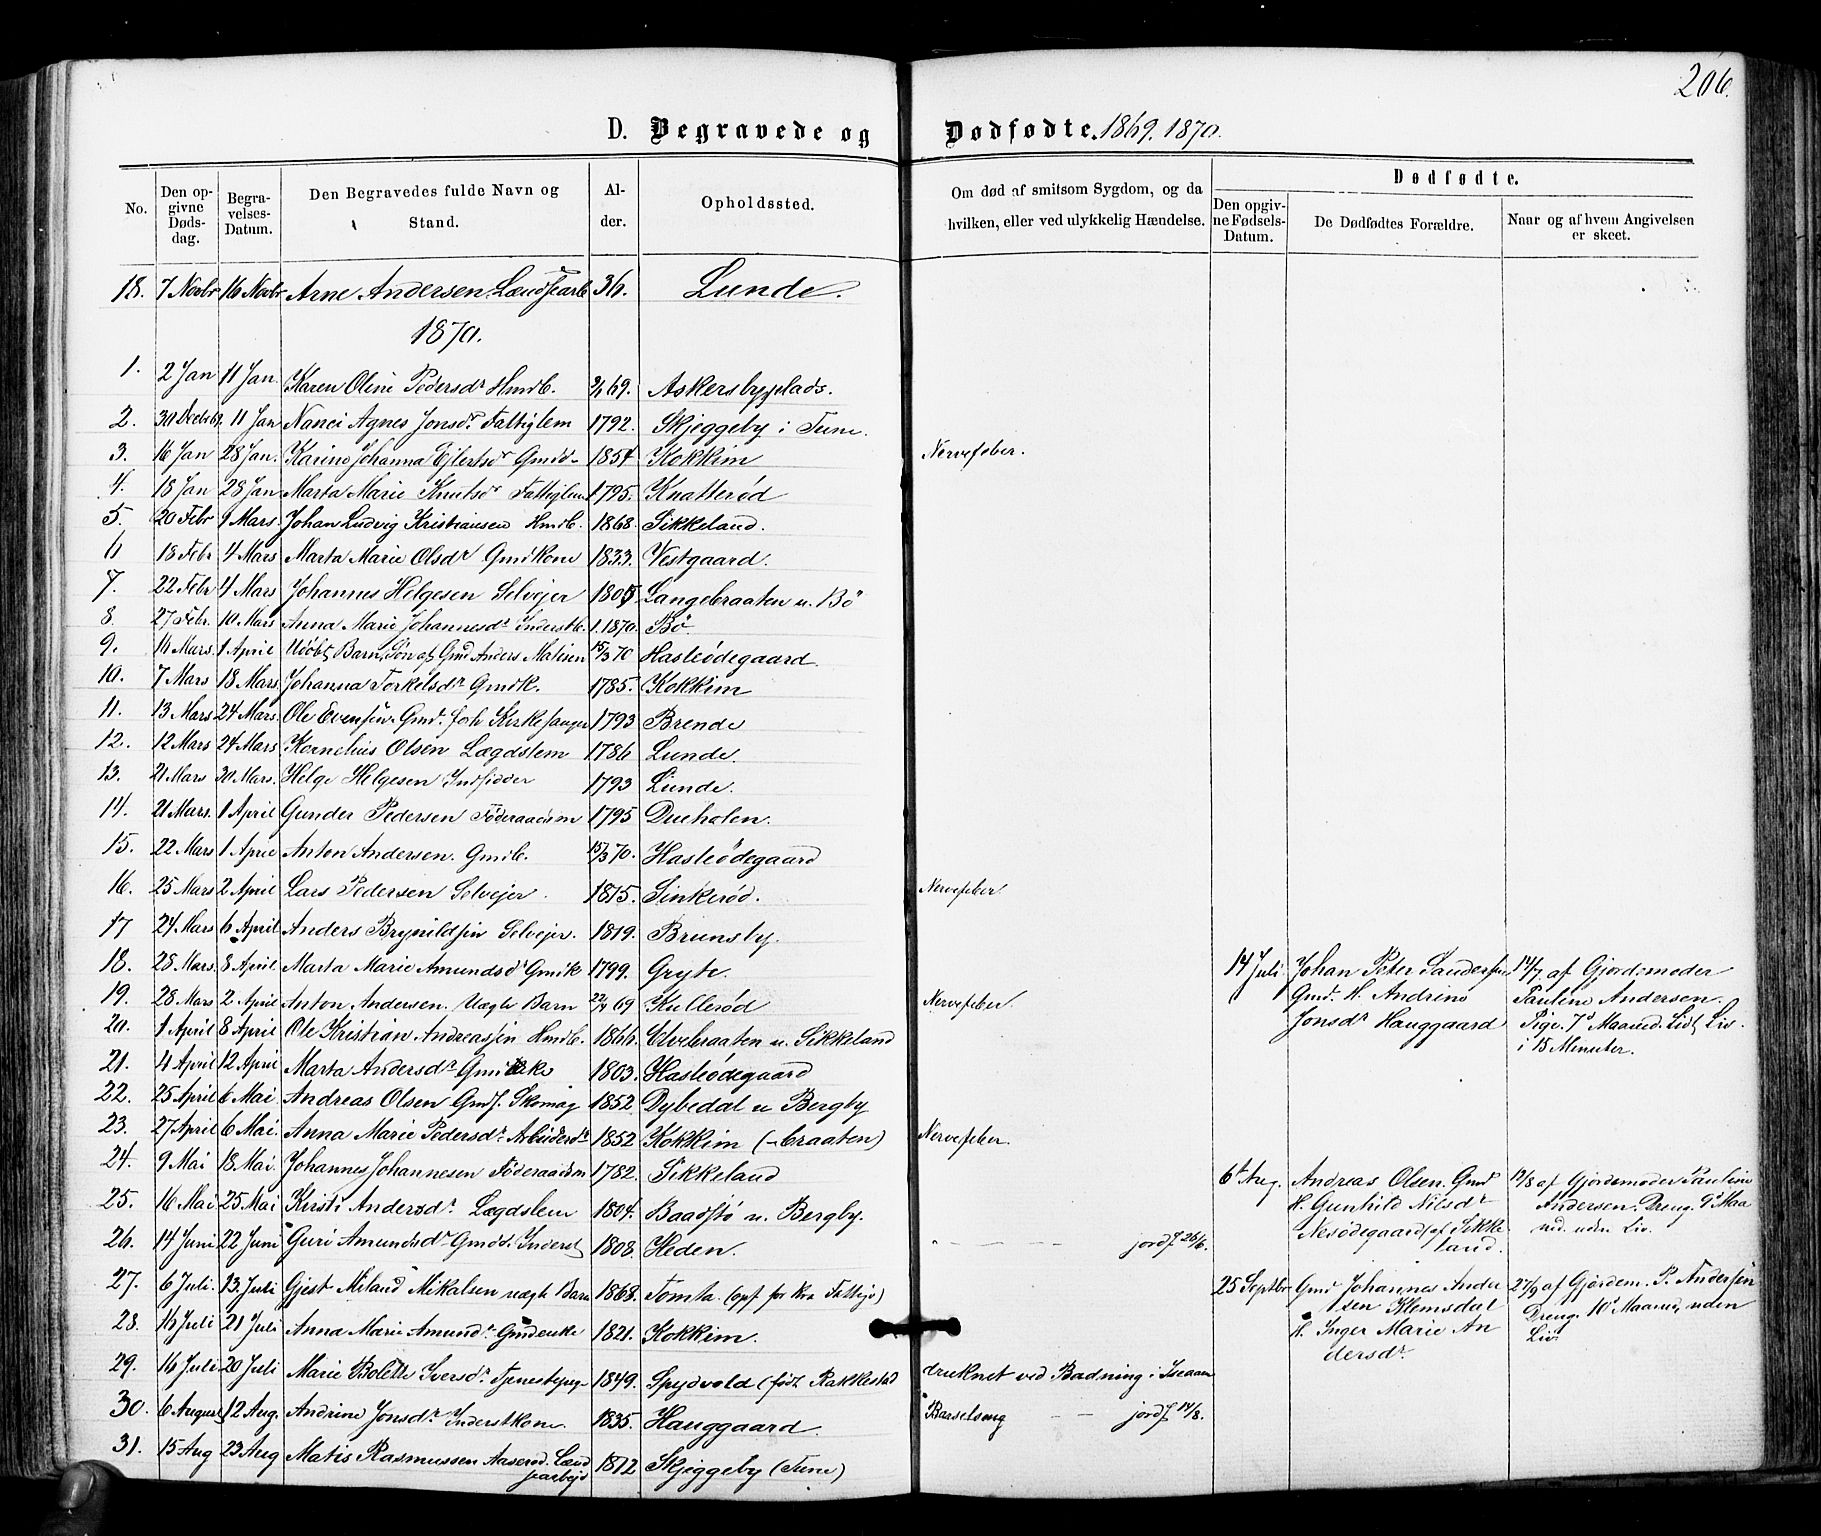 206.
D. Begravede og Dødfødte. 1869. 1870.
No.
Den opgivne Dødsdag.
Begravelses-Datum.
Den Begravedes fulde Navn og Stand.
Alder.
Opholdssted.
Om død af smitsom Sygdom, og da hvilken, eller ved ulykkelig Hændelse.
Dødfødte.
Den opgivne Fødsels-Datum.
De Dødfødtes Forældre.
Naar og af hvem Angivelsen er skeet.
18. 7 Novbr 16 Novbr Arne Andersen 36. Lunde.
1870.
1. 2 Jan 11 Jan. Karen Oline Pedersdr Hmdb. 69. Askersbyplads.
2. 30 Decbr 11 Jan Nanci Agnes Jonsdr Fattiglem 1792. Skjeggeby i Tune.
3. 16 Jan 28 Jan. Karine Johanna Ejlertsdr Gmdd. 1854 Kokkim Nervefeber.
4. 18 Jan 28 Jan Marta Marie Knutsdr Fattiglem 1795. Knatterød
5. 20 Febr 9 Mars. Johan Ludvig Kristiansen Hmdb. 1868. Sikkeland.
6 18 Febr 4 Mars Marta Marie Olsdr Gmdkone 1833. Vestgaard.
7. 22 Febr 4 Mars Johannes Helgesen Selvejer 1805 Langebraaten u. Bö
8. 27 Febr. 10 Mars Anna Marie Johannesdr Inderstb. 1.1870. Bö.
9. 16 Mars. 1 April Udöbt Barn, Søn af Gmd Anders Matisen 15/3 70 Hasleödegaard
10. 7 Mars 18 Mars. Johanna Torkelsdr Gmdk. 1785. Kokkim
11. 13 Mars 24 Mars. Ole Evensen Gmd. foh Kirkesanger 1793 Brende
12. 12 Mars 24 Mars Kornelius Olsen Lægdslem 1786 Lunde.
13. 21 Mars 30 Mars. Helge Helgesen Indsidder 1793 Lunde.
14. 21 Mars. 1 April Gunder Pedersen Föderaadsm 1795 Dueholen.
15. 22 Mars 1 April Anton Andersen. Gmdb. 15/3 70. Hasleödegaard
16. 25 Mars 2 April Lars Pedersen Selvejer. 1815. Sinkerød. Nervefeber
17 24 Mars 6 April Anders Brynildsen Selvejer. 1819. Brunsby.
18. 28 Mars. 8 April. Marta Marie Amundsdr Gmdk 1799. Gryte.
19. 28 Mars 2 April Anton Andersen. Uægte Barn 69 Kullerød Nervefeber.
20. 1 April 8 April. Ole Kristian Andreassen Hmdb. 1866. Elvebraaten u. Sikkeland
21. 4 April 12 April Marta Andersdr 1803. Hasleödegaard
22. 25 April 6 Mai. Andreas Olsen Gmds. Skomag 1852 Dybedal u Bergby
23. 27 April 6 Mai. Anna Marie Pedersdr. Arbeidersdr 1852. Kokkim (-braaten) Nervefeber.
24. 9 Mai 18 Mai. Johannes Johannesen Föderaadsm 1782. Sikkeland
25. 16 Mai 25 Mai Kirsti Andersdr. Lægdslem 1804. Baadstö u. Bergby.
26. 14 Juni 22 Juni Guri Amundsdr Gmdd. Inderst 1808. Heden. jordf 26/6.
27. 6 Juli. 13 Juli Gjest Miland Mikalsen uægte Barn 1868. Tomta (opf for Kra Fattigv)
28. 16 Juli 21 Juli Anna Marie Amundsdr Gmdenke 1821. Kokkim.
29. 16 Juli 20 Juli Marie Bolette Iversdr Tjenestepige 1849. Spydvold (födt Rakkestad druknet ved Badning i Iseaaen
30. 6 August 12 Aug. Andrine Jonsdr Inderstkone. 1835. Hauggaard. Barselseng jordf 14/8.
31. 15 Aug 23 Aug Matis Rasmussen Aaserød. 1812 Skjeggeby (Tune)
14 Juli. Johan Peter Gundersen 14/7 af Gjordemoder
Gmd. H. Andrine Pauline Andersen.
Jonsdr Hauggaard Pige. 7d Maaned. Lidt Liv.
i 15 Minuter.
6t Aug. Andreas Olsen. Gmd 12/8 af Gjordemoder Pauline
H. Gunhild Nilsdr Andersen. Dreng. 9d Maa
Nesödegaard af Sikke ned. uden Liv.
land.
25 Septbr Gmd Johannes Ander 27/9 af Gjordem. P. Andersen
sen Klemsdal Dreng. 10d Maaned, uden
H. Inger Marie An Liv.
dersdr.